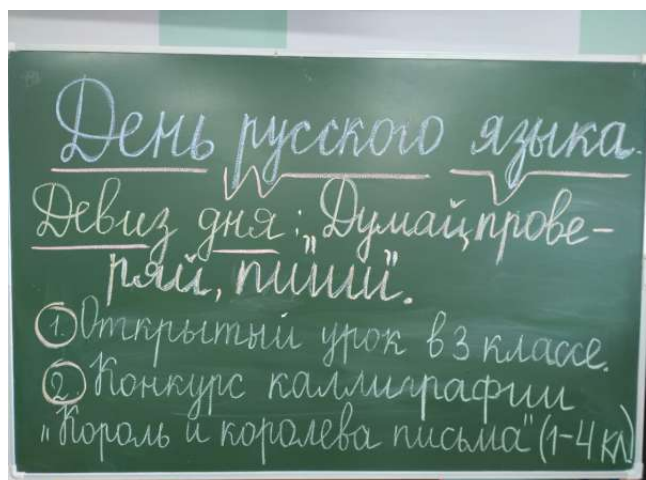 День русского языка.
Девиз дня: „Думай, прове-
ряй, пиши".
1. Открытый урок в 3 классе.
2. Конкурс каллиграфии
„Король и королева письма" (1-4 кл)